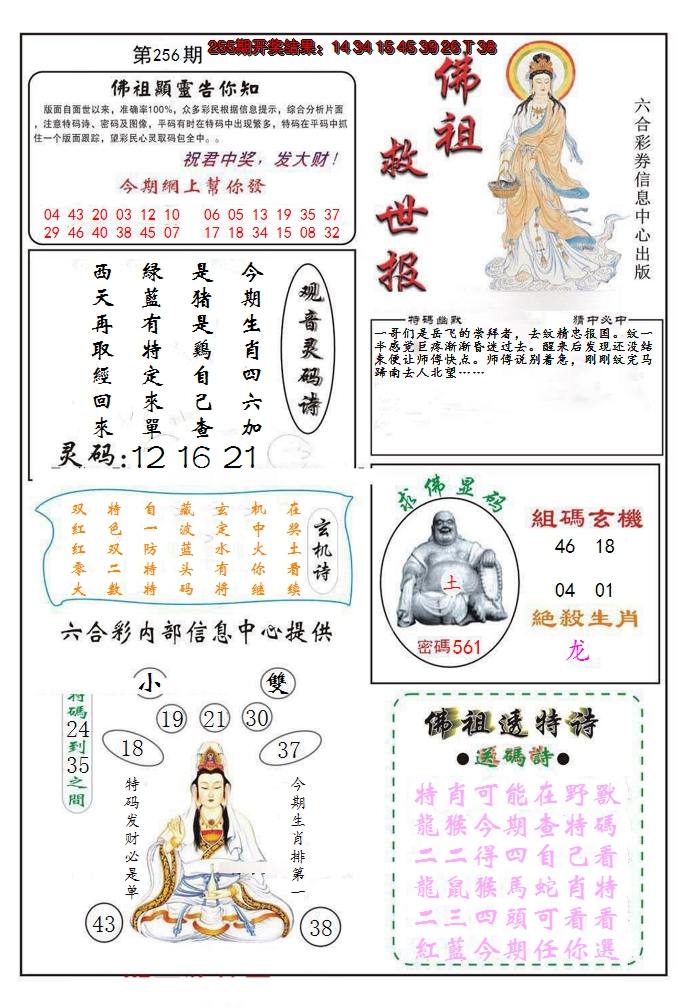 第256期
255期开奖结果：14 34 15 45 39 26 T 38
佛祖顯靈告你知
版面自面世以来，准确率100%，众多彩民根据信息提示，综合分析片面
，注意特码诗、密码及图像，平码有时在特码中出现繁多，特码在平码中抓
住一个版面跟踪，望彩民心灵取码包全中。。
祝君中奖，发大财！
今期網上幫你發
04 43 20 03 12 10 06 05 13 19 35 37
29 46 40 38 45 07 17 18 34 15 08 32
佛祖
救世报
六合彩券信息中心出版
观音灵码诗
今期生肖四六加
是猪是鷄自己查
緑藍有特定來單
西天再取經回來
灵码:12 16 21
特碼幽默
猜中必中
一哥们是岳飞的崇拜者，去纹精忠报国。纹一
半感觉巨疼渐渐昏迷过去。醒来后发现还没结
束便让师傅快点。师傅说别着急，刚刚纹完马
蹄南去人北望……
玄机诗
在奖土看续
机中火你继
玄定水有将
藏波蓝头码
自一防特特
特色双二数
双红红零大
六合彩内部信息中心提供
求佛显码
土
密碼561
組碼玄機
46 18
04 01
絶殺生肖
龙
小
雙
特碼24到35之間
19 21 30
18
37
特码发财必是单
今期生肖排第一
43
38
佛祖透特诗
●送碼詩●
特肖可能在野獸
龍猴今期查特碼
二二得四自己看
龍鼠猴馬蛇肖特
二三四頭可看看
紅藍今期任你選